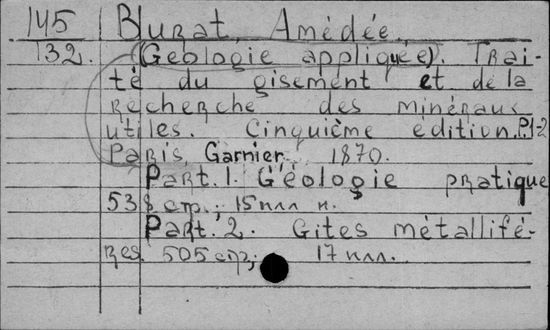 145 Burat, Amédée.
132. (Géologie appliquée). Trai-
té du gisement et de la
recherche des minéraux
utiles. Cinquième édition. P.1-2
Paris, Garnier, 1870.
Part. 1. Géologie pratique
538 стр.; 15 илл.
Part. 2. Gites métallifé-
res. 505 стр.; 17 илл.